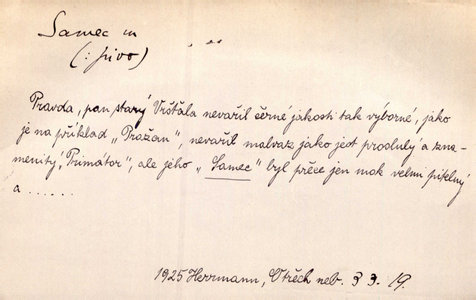 Samec m
(: pivo)
Pravda, pan starý Vršťala nevařil černé jakosti tak výborné, jako
je na příklad „Pražan“, nevařil malvaz jako jest proslulý a zna-
menitý „Primátor“, ale jeho „Samec“ byl přece jen mok velmi pitelný
a . . . . . .
1925 Herrmann, V třech neb. 3 3. 19.